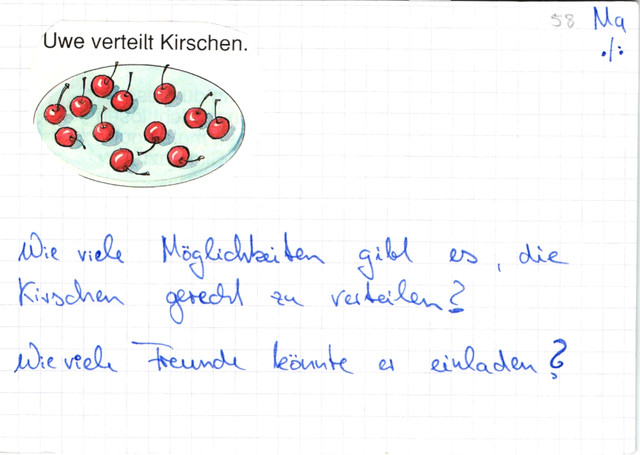 58 Ma
Uwe verteilt Kirschen.
·/:
Wie viele Möglichkeiten gibt es, die
Kirschen gerecht zu verteilen?
Wie viele Freunde könnte er einladen?